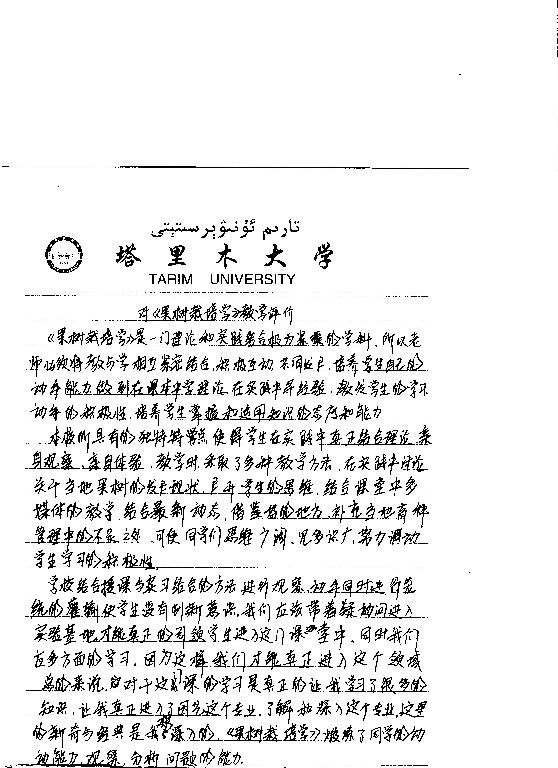 تارىم ئۇنىۋېرسىتېتى
塔里木大学
TARIM UNIVERSITY
对《果树栽培学》教学评价
《果树栽培学》是一门理论和实践结合极为紧密的学科，所以老
师必须将教与学相互紧密结合，积极互动，共同进步，培养学生自己的
动手能力，做到在课本中学理论，在实践中得经验，激发学生的学习
动手的积极性，培养学生掌握和运用知识的态度和能力
本校所具有的独特特点，使得学生在实践中真正结合理论，亲
自观察，亲自体验，教学时采取了多种教学方法，在实践中讨论
关于当地果树的发展现状，展开学生的思维，结合课堂中多
媒体的教学，结合最新动态，借鉴的地方，补充当地育种
管理中的不足之处，可使同学们思维广阔，见多识广，努力调动
学生学习的积极性。
学校结合授课与实习结合的方法，进行观察，动手同时进行系
统的灌输，使学生要有创新意识，我们应该带着疑问进入
实验基地才能真正的引领学生进入这门课堂中，同时我们
在多方面的学习，因为这样我们才能真正进入这个领域
总的来说，对于这门课的学习是真正的让我学习了很多的
知识，让我真正进入了园艺这个专业，了解和深入这个专业，这里
的新奇与经典是我深入的，《果树栽培学》锻炼了同学的动
动能力，观察，分析问题的能力.